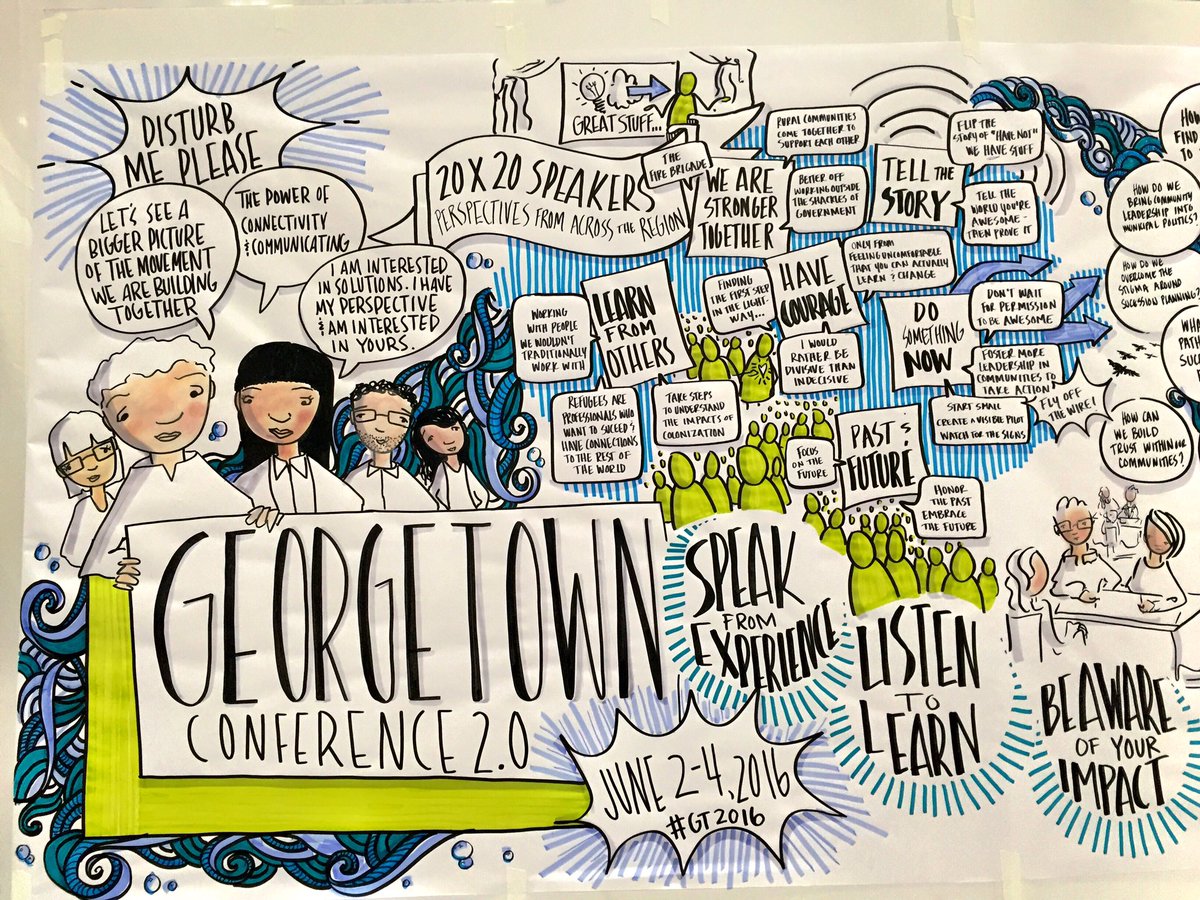 DISTURB
ME PLEASE
LET'S SEE A
BIGGER PICTURE
OF THE MOVEMENT
WE ARE BUILDING
TOGETHER
THE POWER OF
CONNECTIVITY
& COMMUNICATING
I AM INTERESTED
IN SOLUTIONS. I HAVE
MY PERSPECTIVE
& AM INTERESTED
IN YOURS.
GREAT STUFF...
20 X 20 SPEAKERS
PERSPECTIVES FROM ACROSS THE REGION
THE
FIRE BRIGADE
WE ARE
STRONGER
TOGETHER
RURAL COMMUNITIES
COME TOGETHER TO
SUPPORT EACH OTHER
BETTER OFF
WORKING OUTSIDE
THE SHACKLES OF
GOVERNMENT
TELL THE
STORY
FLIP THE
STORY OF "HAVE NOT"
WE HAVE STUFF
TELL THE
WORLD YOU'RE
AWESOME -
THEN PROVE IT
LEARN
FROM
OTHERS
WORKING
WITH PEOPLE
WE WOULDN'T
TRADITIONALLY
WORK WITH
REFUGEES ARE
PROFESSIONALS WHO
WANT TO SUCEED &
HAVE CONNECTIONS
TO THE REST OF
THE WORLD
TAKE STEPS
TO UNDERSTAND
THE IMPACTS OF
COLONIZATION
HAVE
COURAGE
FINDING
THE FIRST STEP
IN THE LIGHT-
WAY...
ONLY FROM
FEELING UNCOMFORTABLE
THAT YOU CAN ACTUALLY
LEARN & CHANGE
I WOULD
RATHER BE
DIVISIVE THAN
INDECISIVE
DO
SOMETHING
NOW
DON'T WAIT
FOR PERMISSION
TO BE AWESOME
FOSTER MORE
LEADERSHIP IN
COMMUNITIES TO
TAKE ACTION
START SMALL
CREATE A VISIBLE PILOT
WATCH FOR THE SIGNS
FLY OFF
THE WIRE!
PAST &
FUTURE
FOCUS
ON THE
FUTURE
HONOR
THE PAST
EMBRACE
THE FUTURE
HOW
FIND
TO
HOW DO WE
BRING COMMUNITY
LEADERSHIP INTO
MUNICIPAL POLITICS?
HOW DO WE
OVERCOME THE
STIGMA AROUND
SUCESSION PLANNING?
PATH
HOW CAN
WE BUILD
TRUST WITHIN OUR
COMMUNITIES?
GEORGETOWN
CONFERENCE 2.0
JUNE 2-4, 2016
#GT2016
SPEAK
FROM
EXPERIENCE
LISTEN
TO
LEARN
BE AWARE
OF YOUR
IMPACT